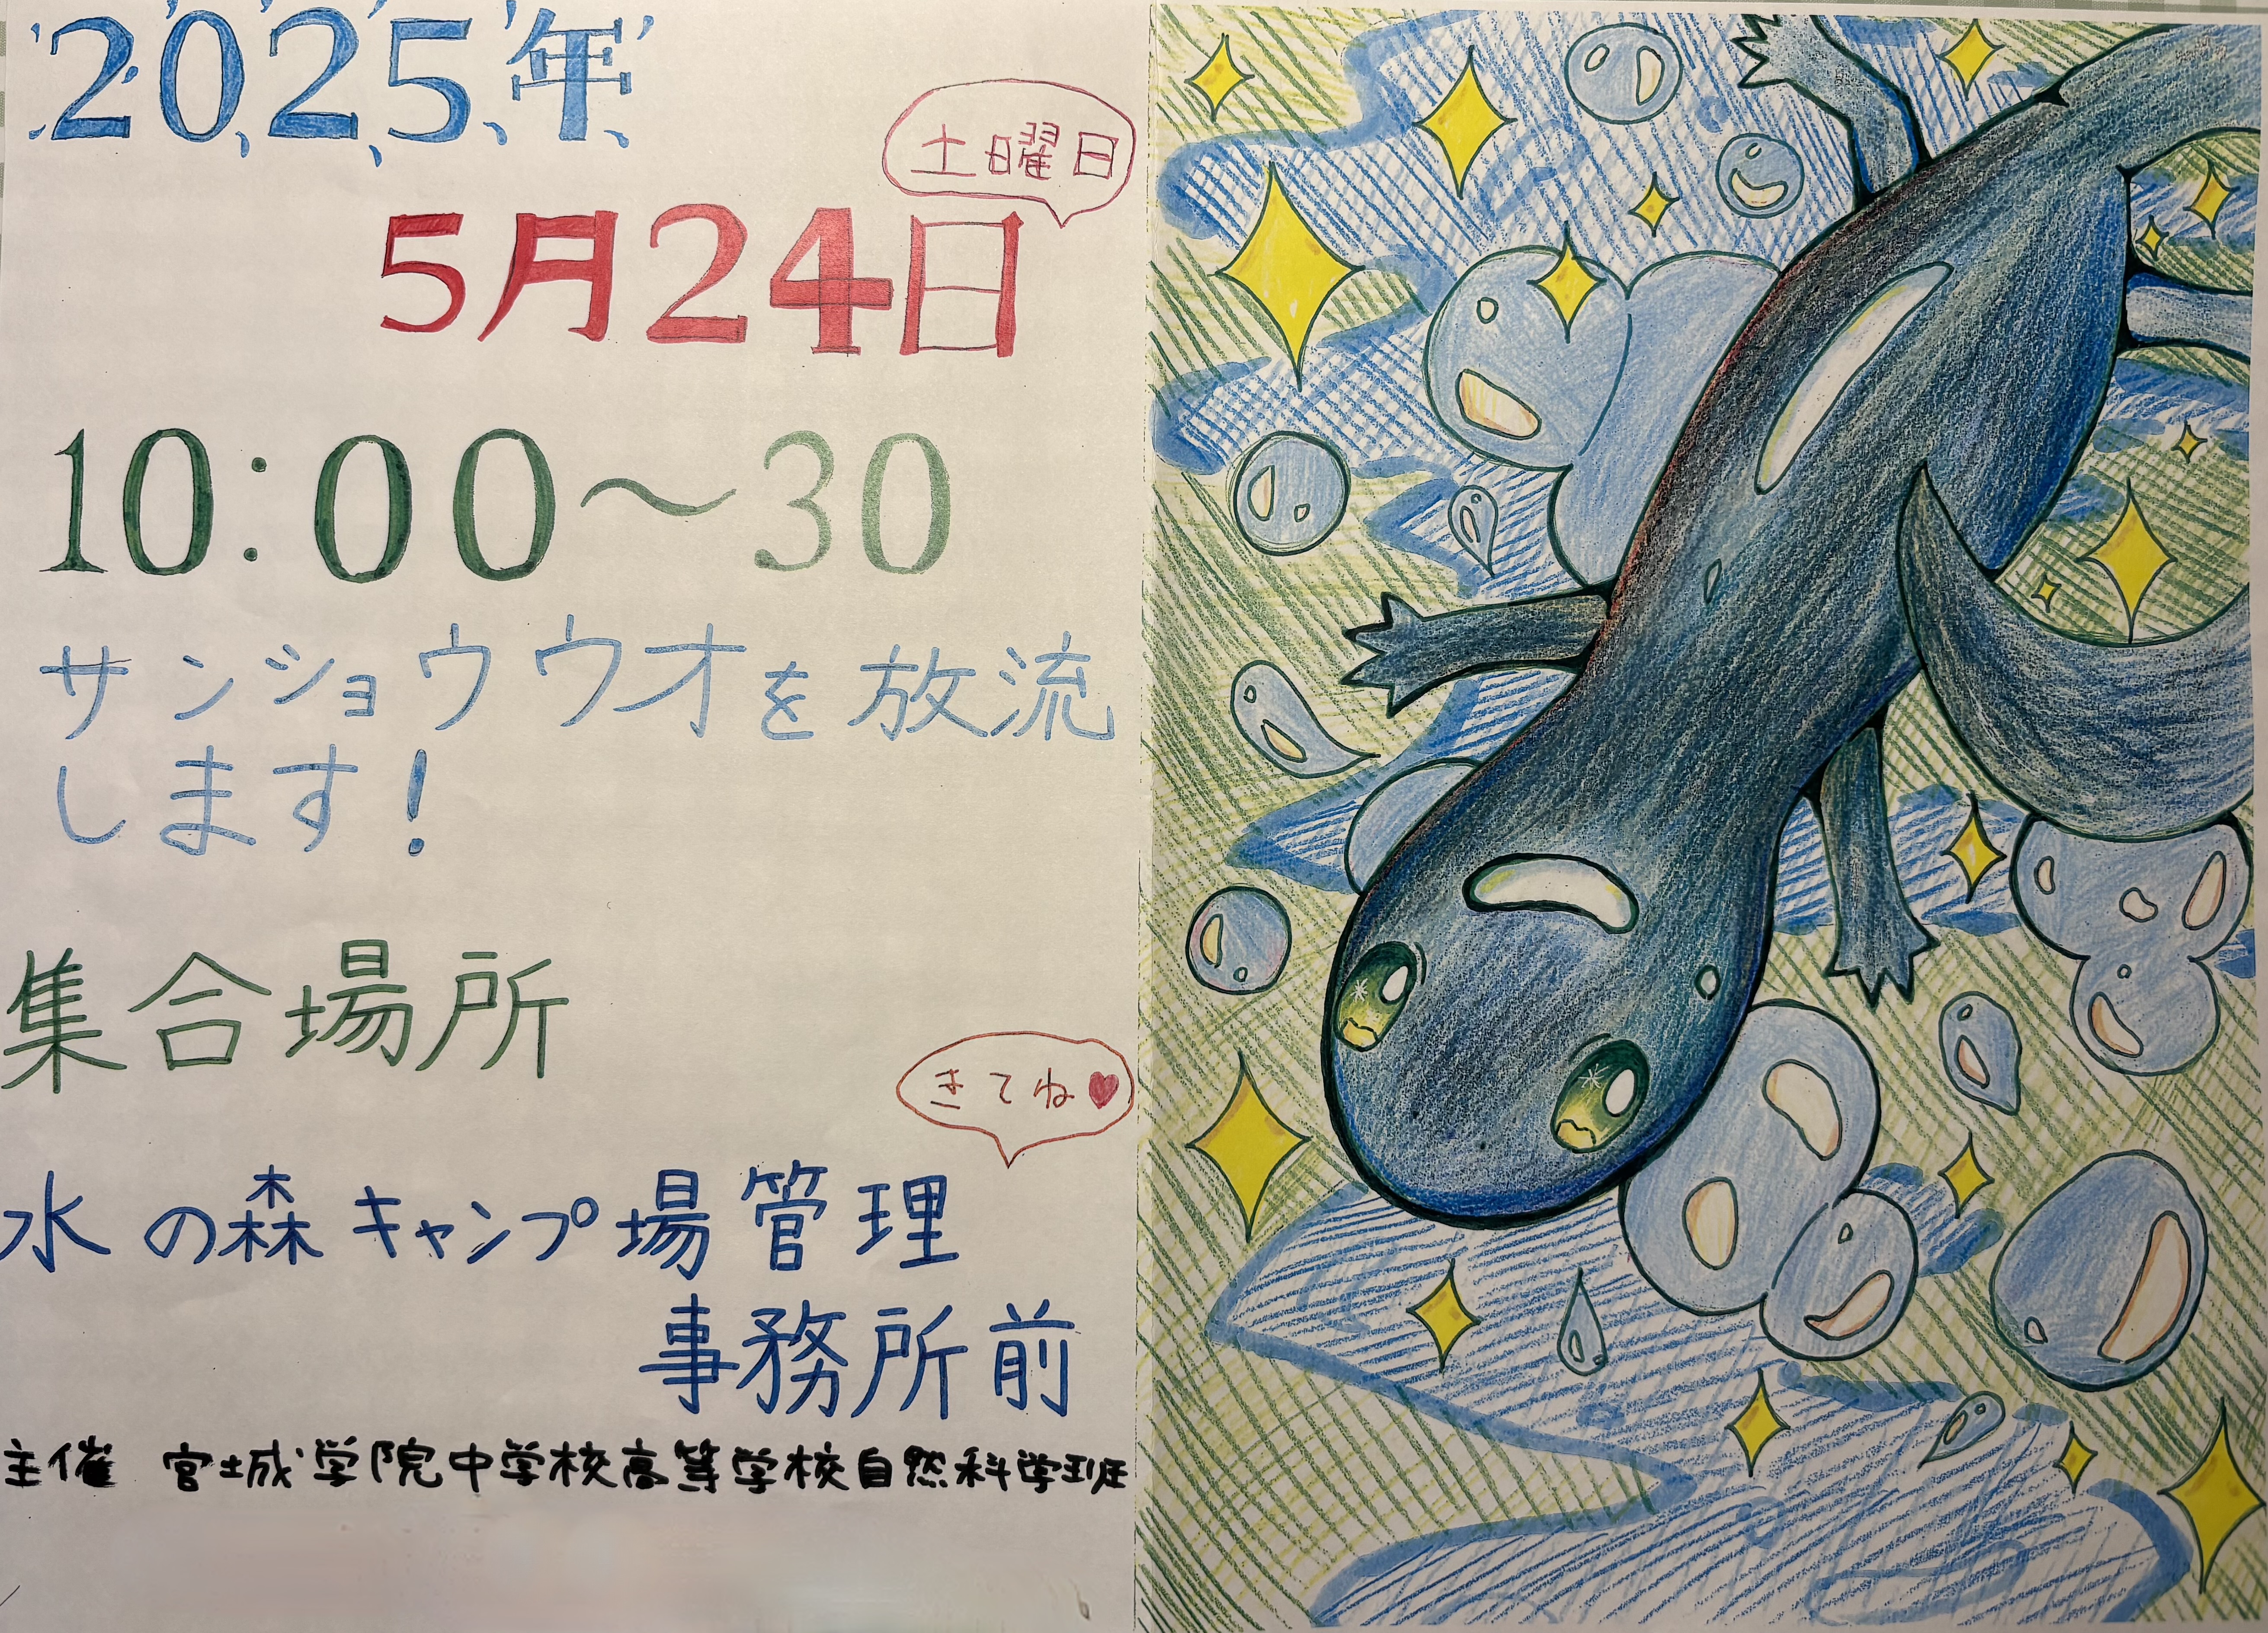 2025年
土曜日
5月24日
10:00～30
サンショウウオを放流
します!
集合場所
きてね♥
水の森キャンプ場管理
事務所前
主催 宮城学院中学校高等学校自然科学班